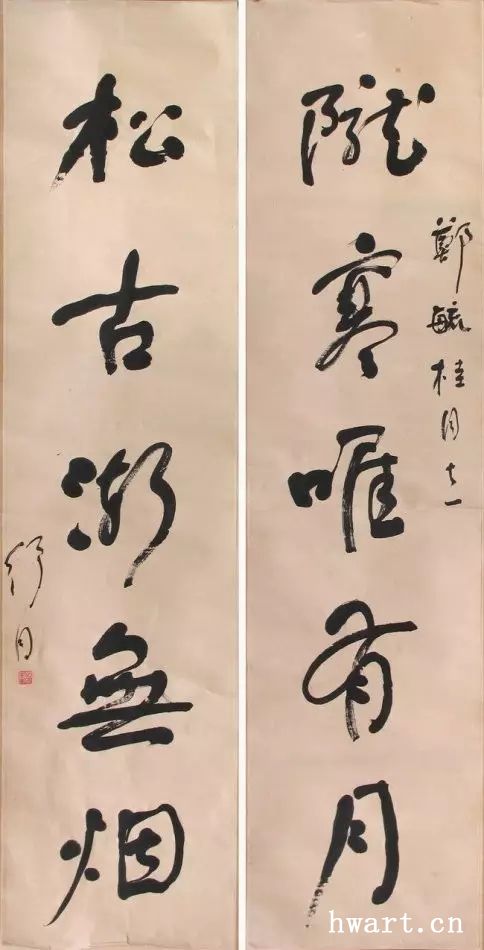 隴寒唯有月
鄭毓桂同志
松古漸無烟
舒同
hwart.cn